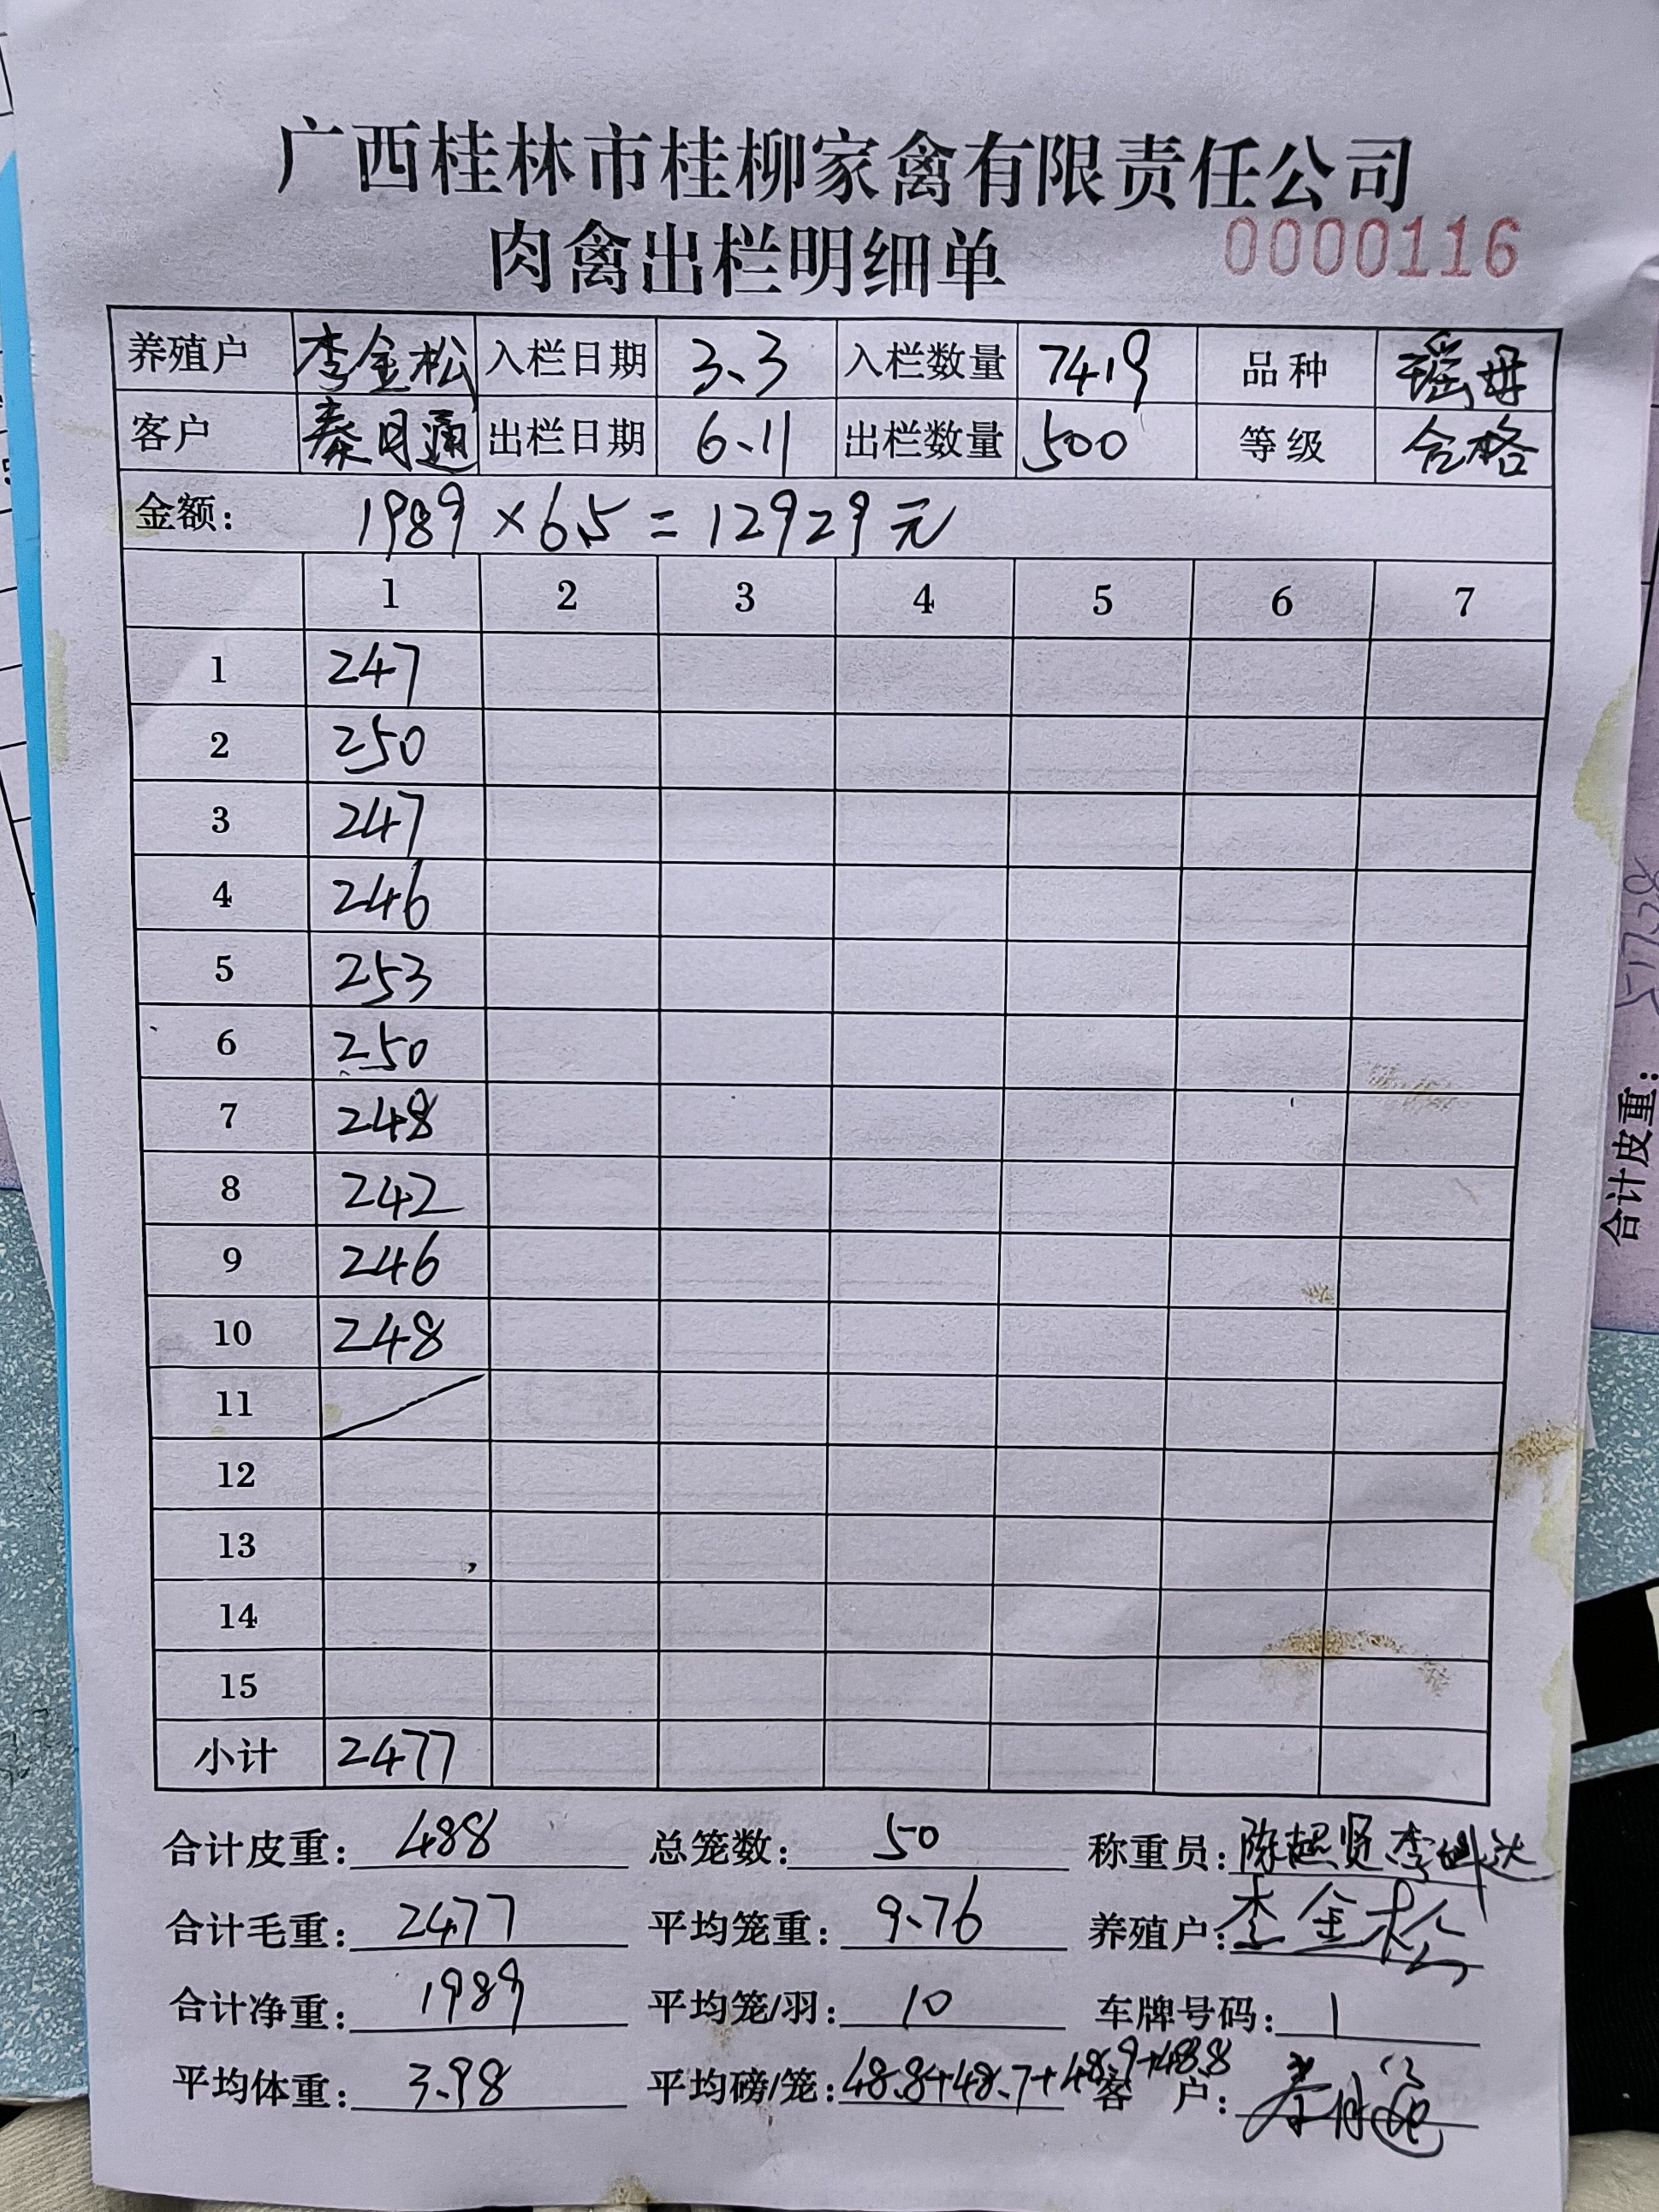 广西桂林市桂柳家禽有限责任公司
肉禽出栏明细单 0000116
养殖户 李金松 入栏日期 3.3 入栏数量 7419 品种 瑶母
客户 秦月通 出栏日期 6.11 出栏数量 500 等级 合格
金额： 1989×6.5=12929元
1 2 3 4 5 6 7
1 247
2 250
3 247
4 246
5 253
6 250
7 248
8 242
9 246
10 248
11
12
13
14
15
小计 2477
合计皮重： 488 总笼数： 50 称重员： 陈超贤 李
合计毛重： 2477 平均笼重： 9.76 养殖户： 李金松
合计净重： 1989 平均笼/羽： 10 车牌号码： 1
平均体重： 3.98 平均磅/笼： 48.8+48.7+48.9+48.8 客 户： 秦月通
合计皮重：